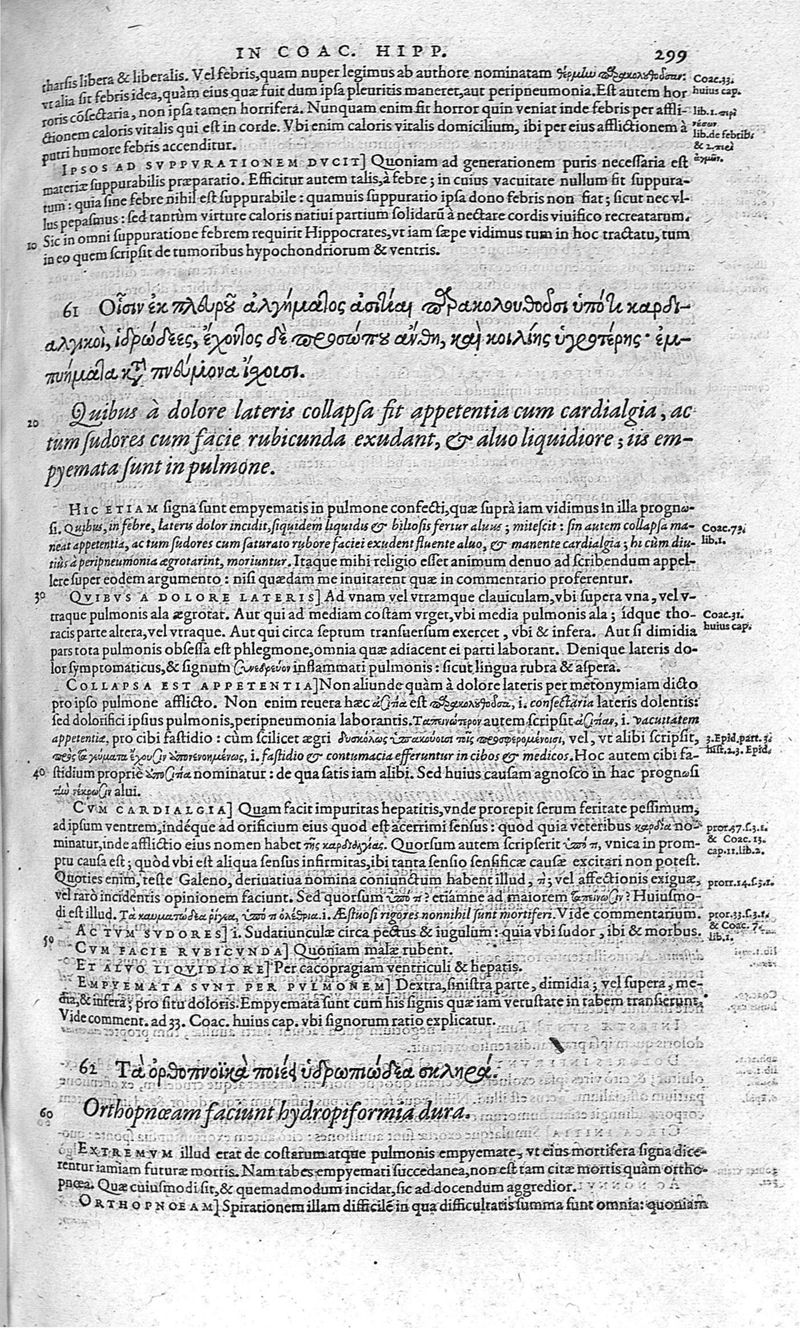 IN COAC. HIPP.
299
tharsis libera & liberalis. Vel febris, quam nuper legimus ab authore nominatam
vt alia sit febris idea, quàm eius quæ fuit dum ipsa pleuritis maneret, aut peripneumonia. Est autem hor
roris cōsectaria, non ipsa tamen horrifera. Nunquam enim fit horror quin veniat inde febris per affli-
ctionem caloris vitalis qui est in corde. Vbi enim caloris vitalis domicilium, ibi per eius afflictionem à
putri humore febris accenditur.
Coac. 33.
huius cap.
lib. 1.
lib. de febrib⁹
& 2.
IPSOS AD SVPPVRATIONEM DVCIT] Quoniam ad generationem puris necessaria est
materiæ suppurabilis præparatio. Efficitur autem talis, à febre; in cuius vacuitate nullum fit suppura-
tum: quia sine febre nihil est suppurabile: quamuis suppuratio ipsa dono febris non fiat; sicut nec vl-
lus pepasmus: sed tantùm virtute caloris natiui partium solidarū à nectare cordis viuifico recreatarum.
10 Sic in omni suppuratione febrem requirit Hippocrates, vt iam sæpe vidimus tum in hoc tractatu, tum
in eo quem scripsit de tumoribus hypochondriorum & ventris.
61 Οἷσιν ἐκ πλευροῦ ἀλγήματος ἀσιτίαι παρακολουθοῦσι ὑπό τι καρδι-
αλγικοὶ, ἱδρώδεες, ἔχοντος δὲ προσώπου ἄνθη, καὶ κοιλίης ὑγροτέρης· ἐμ-
πυήματα κατὰ πνεύμονα ἴχουσι.
20 Quibus à dolore lateris collapsa fit appetentia cum cardialgia, ac
tum sudores cum facie rubicunda exudant, & aluo liquidiore; iis em-
pyemata sunt in pulmone.
HIC ETIAM signa sunt empyematis in pulmone confecti, quæ suprà iam vidimus in illa progno-
si. Quibus, in febre, lateris dolor incidit, siquidem liquidis & biliosis fertur aluus; mitescit: sin autem collapsa ma-
neat appetentia, ac tum sudores cum saturato rubore faciei exudent fluente aluo, & manente cardialgia; hi cùm diu-
tiùs à peripneumonia ægrotarint, moriuntur. Itaque mihi religio esset animum denuo ad scribendum appel-
lere super eodem argumento: nisi quædam me inuitarent quæ in commentario proferentur.
Coac. 73.
lib. 1.
30 QVIBVS A DOLORE LATERIS] Ad vnam vel vtramque clauiculam, vbi supera vna, vel v-
traque pulmonis ala ægrotat. Aut qui ad mediam costam vrget, vbi media pulmonis ala; idque tho-
racis parte altera, vel vtraque. Aut qui circa septum transuersum exercet, vbi & infera. Aut si dimidia
pars tota pulmonis obsessa est phlegmone, omnia quæ adiacent ei parti laborant. Denique lateris do-
lor symptomaticus, & signum συνεδρεῦον inflammati pulmonis: sicut lingua rubra & aspera.
Coac. 31.
huius cap.
COLLAPSA EST APPETENTIA] Non aliunde quàm à dolore lateris per metonymiam dicto
pro ipso pulmone afflicto. Non enim reuera hæc ἀσιτία est παρακολουθοῦσα, i. consectaria lateris dolentis:
sed dolorifici ipsius pulmonis, peripneumonia laborantis. Ταπεινώτερον autem scripsit ἀσιτίαν, i. vacuitatem
appetentiæ, pro cibi fastidio: cùm scilicet ægri δυσκόλως ὑπακούουσι τοῖς προσφερομένοισι, vel, vt alibi scripsit,
πρὸς τὰ γεύματα ἔχουσιν ἀπονενοημένως, i. fastidio & contumacia efferuntur in cibos & medicos. Hoc autem cibi fa-
40 stidium propriè ἀποσιτία nominatur: de qua satis iam alibi. Sed huius causam agnosco in hac prognosi
τὴν νέκρωσιν alui.
3. Epid. part. 3.
hist. 2. 3. Epid.
CVM CARDIALGIA] Quam facit impuritas hepatitis, vnde prorepit serum feritate pessimum,
ad ipsum ventrem, indéque ad orificium eius quod est acerrimi sensus: quod quia veteribus καρδία no-
minatur, inde afflictio eius nomen habet τῆς καρδιαλγίας. Quorsum autem scripserit ὑπό τι, vnica in prom-
ptu causa est; quòd vbi est aliqua sensus infirmitas, ibi tanta sensio sensificæ causæ excitari non potest.
Quoties enim, teste Galeno, deriuatiua nomina coniunctum habent illud, τι; vel affectionis exiguæ,
vel rarò incidentis opinionem faciunt. Sed quorsum ὑπό τι? etiámne ad maiorem ταπείνωσιν? Huiusmo-
di est illud. Τὰ καυματώδεα ῥίγεα, ὑπό τι ὀλέθρια. i. Æstuosi rigores nonnihil sunt mortiferi. Vide commentarium.
pror. 47. s. 3. l. 1.
& Coac. 13.
cap. 11. lib. 2.
prorr. 14. s. 3. l. 1.
pror. 33. s. 3. l. 1.
& Coac. 7.
lib. 1.
ACTVM SVDORES] i. Sudatiunculæ circa pectus & iugulum: quia vbi sudor, ibi & morbus.
50 CVM FACIE RVBICVNDA] Quoniam malæ rubent.
ET ALVO LIQVIDIORE] Per cacopragiam ventriculi & hepatis.
EMPYEMATA SVNT PER PVLMONEM] Dextra, sinistra parte, dimidia; vel supera, me-
dia, & infera; pro situ doloris. Empyemata sunt cum his signis quæ iam vetustate in tabem transierunt.
Vide comment. ad 33. Coac. huius cap. vbi signorum ratio explicatur.
62 Τὰ ὀρθοπνοϊκὰ ποιεῖ ὑδρωπιώδεα σκληρά.
60 Orthopnœam faciunt hydropiformia dura.
EXTREMVM illud erat de costarum atque pulmonis empyemate, vt eius mortifera signa dice-
rentur iamiam futuræ mortis. Nam tabes empyemati succedanea, non est tam citæ mortis quàm ortho-
pnœa. Quæ cuiusmodi sit, & quemadmodum incidat, sic ad docendum aggredior.
ORTHOPNOEAM] Spirationem illam difficilē in qua difficultatis summa sunt omnia: quoniam